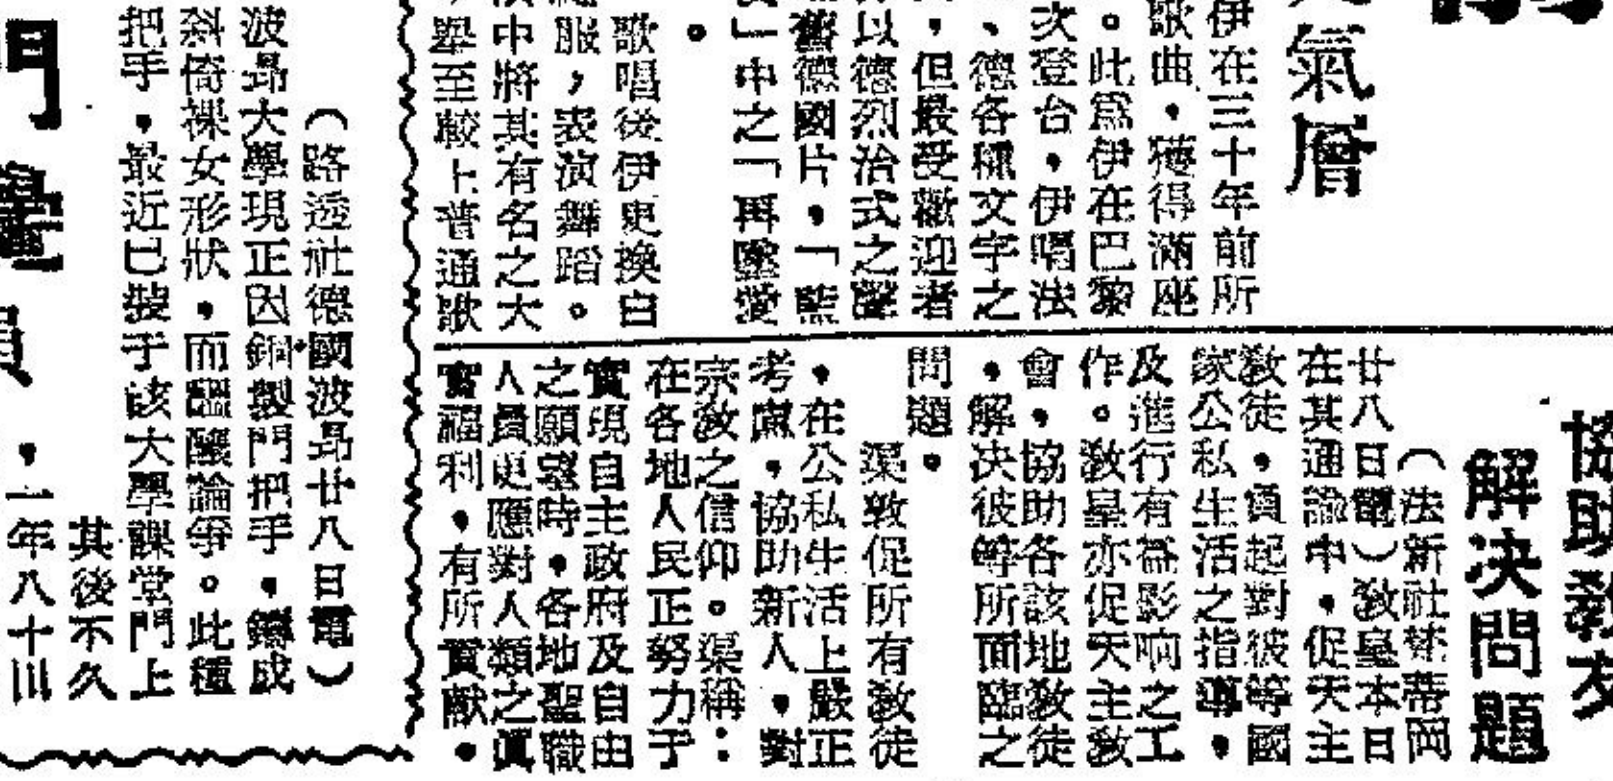 氣層
伊在三十年前所
歌曲，獲得滿座
。此爲伊在巴黎
次登台，伊唱法
、德各種文字之
，但最受歡迎者
以德烈治式之聲
舊德國片，「藍
」中之「再墮愛
。
歌唱後伊更換白
服，表演舞蹈。
中將其有名之大
舉至較上普通歌
協助教友
解決問題
（法新社梵蒂岡
廿八日電）教皇本日
在其通諭中，促天主
教徒，負起對彼等國
家公私生活之指導，
及進行有爲影响之工
作。教皇亦促天主教
會，協助各該地教徒
，解決彼等所面臨之
問題。
渠敦促所有教徒
，在公私生活上嚴正
考慮，協助新人，對
宗教之信仰。渠稱：
在各地人民正努力于
實現自主政府及自由
之願望時，各地聖職
人員更應對人類之眞
實福利，有所貢獻。
（路透社德國波昂廿八日電）
波昂大學現正因銅製門把手，鑄成
斜倚裸女形狀，而醞釀論爭。此種
把手，最近已裝于該大學課堂門上
其後不久
，一年八十川
門
員